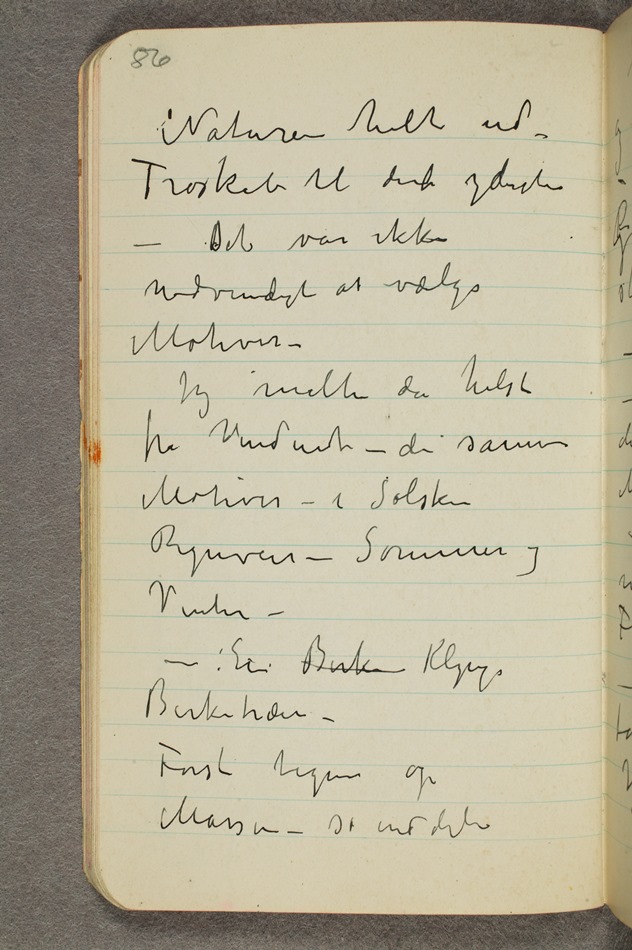 86
Naturen helt ud –
Troskab til det yderste
– Det var ikke
nødvendigt at vælge
Motiver –
Jeg malte da helst
fra Vinduet – de samme
Motiver – i Solskin
Regnveir – Sommer og
Vinter –
– : En Birken Klynge
Birketrær –
Først tegne op
Massen – så inddele